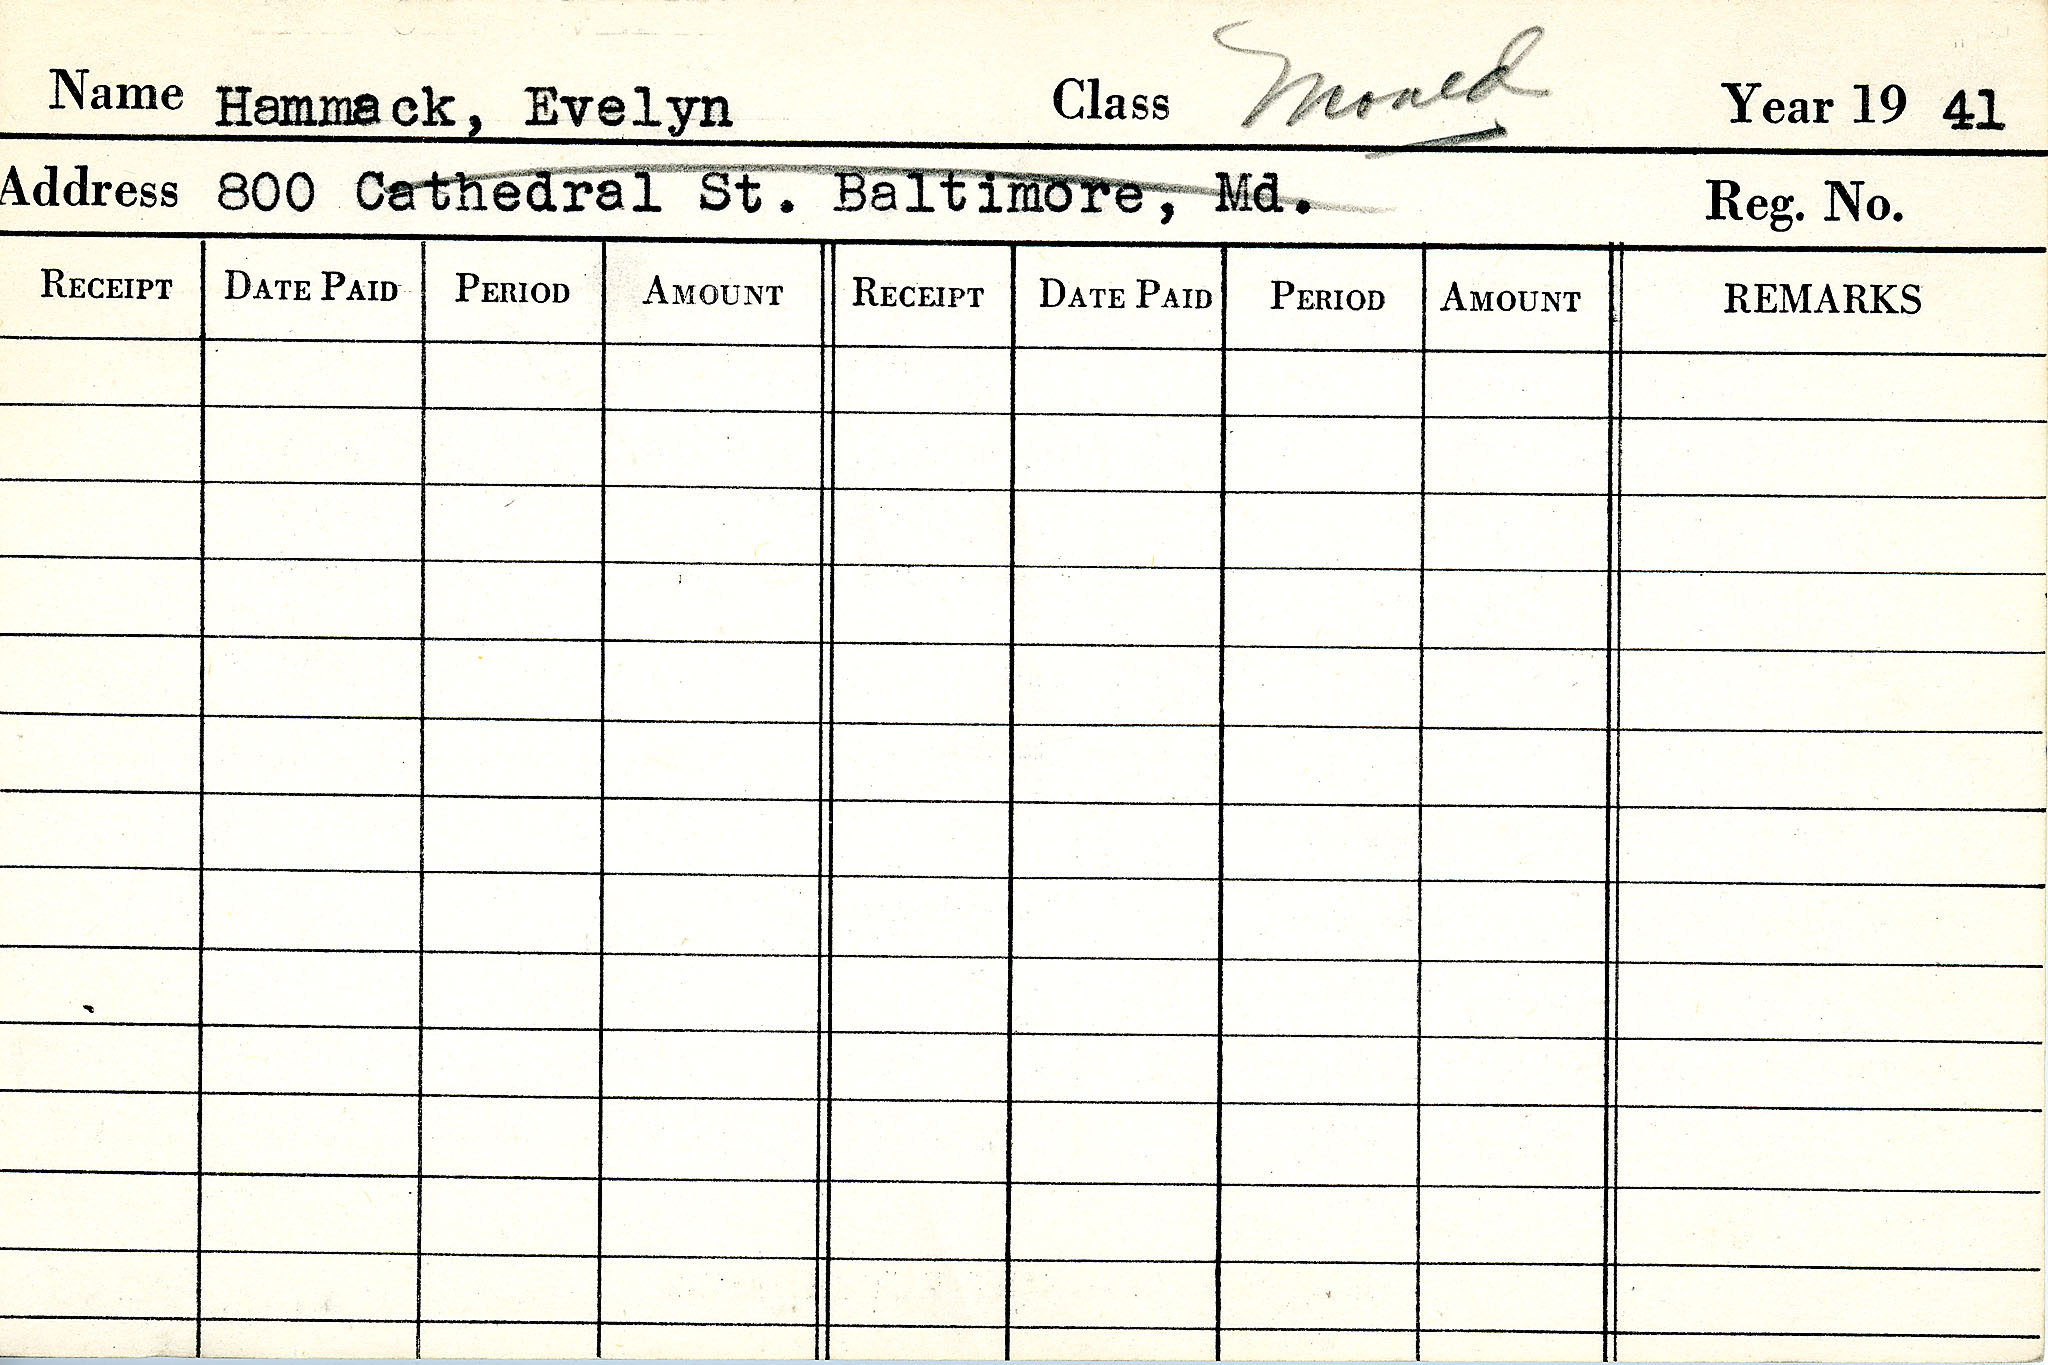 Name Hammack, Evelyn Class Moved Year 19 41
Address 800 Cathedral St. Baltimore, Md. Reg. No.
RECEIPT DATE PAID PERIOD AMOUNT RECEIPT DATE PAID PERIOD AMOUNT REMARKS